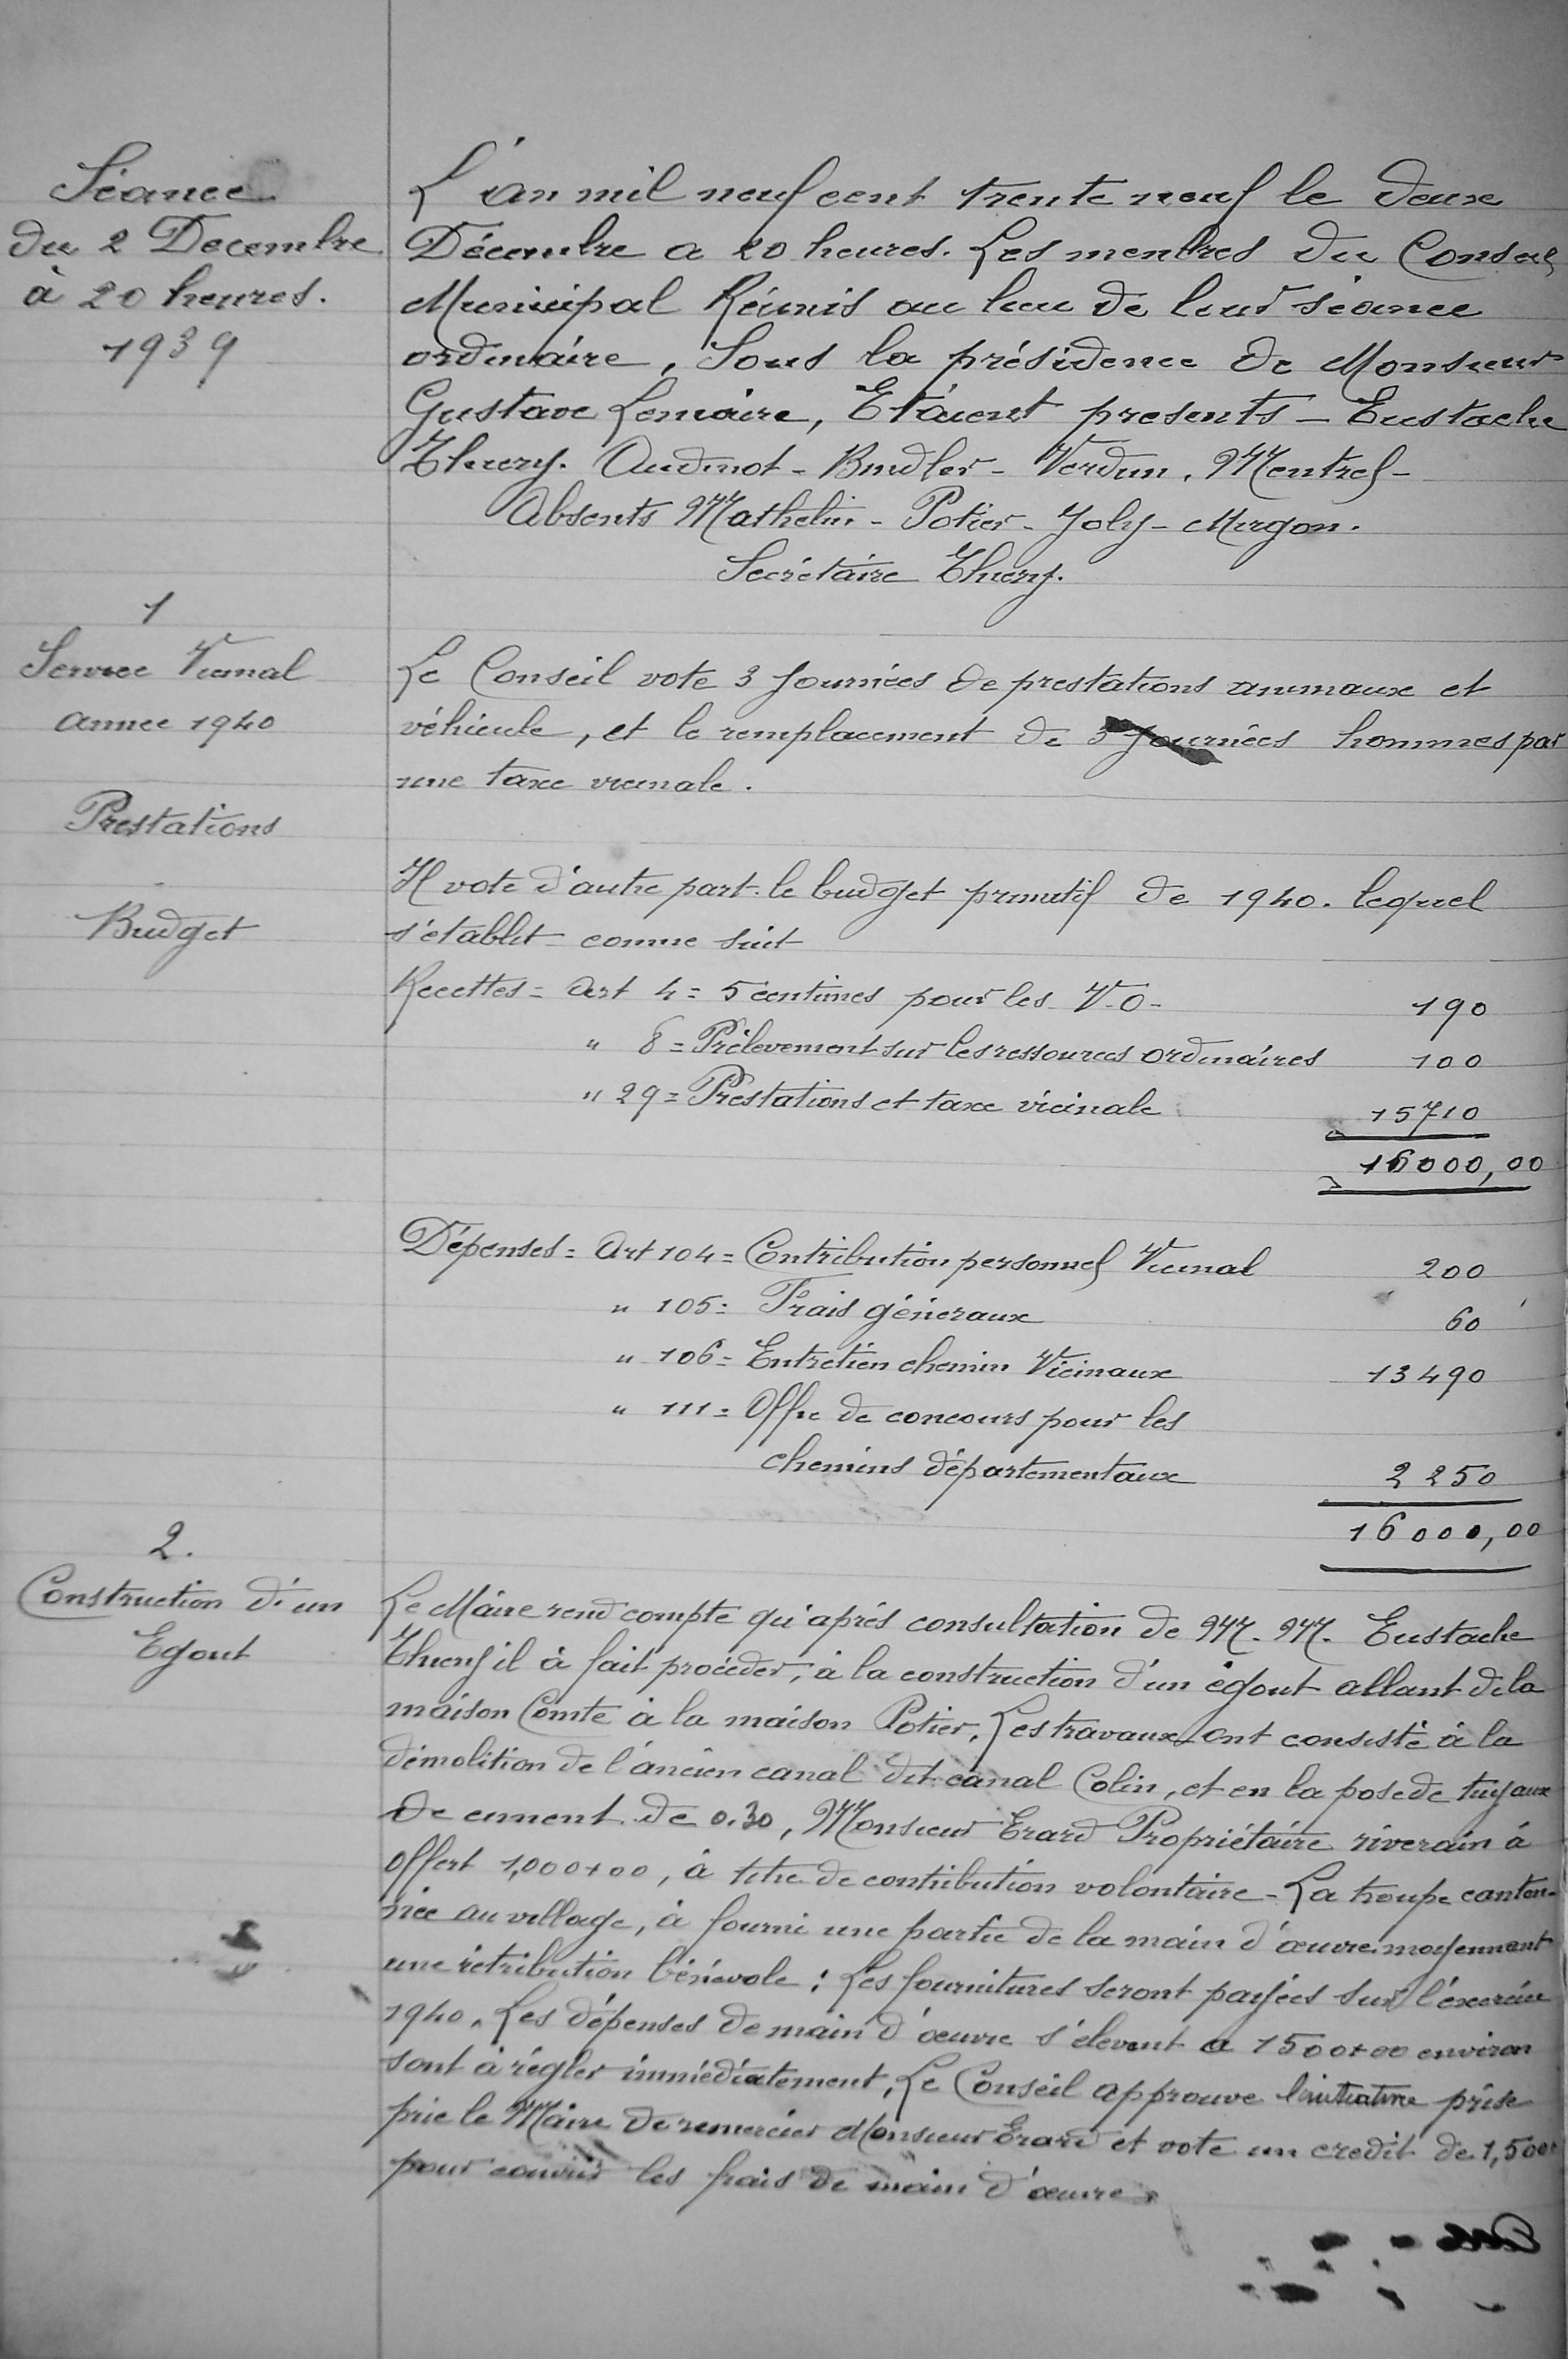 Séance
du 2 Decembre
à 20 heures.
1939
L'an mil neuf cent trente neuf le deux
Décembre a 20 heures. Les menbres du Conseil
Municipal Réunis au lieu de leur séance
ordinaire, Sous la présidence de Monsieur
Gustave Lemaire, Etaient presents - Eustache
Thiery. Audinot - Bindler - Verdun. Mentrel -
Absents Mathelin - Potier - Joly - Mergon.
Secrétaire Thiery.
1
Service Vicinal
année 1940
Prestations
Le Conseil vote 3 journées de prestations animaux et
véhicule, et le remplacement de 3 journées hommes par
une taxe vicinale.
Budget
Il vote d'autre part le budget primitif de 1940. lequel
s'établit comme suit
Recettes = Art 4 = 5 centimes pour les V.O - 190
" 8 = Prélevement sur les ressources ordinaires 100
" 29 = Prestations et taxe vicinale 15710
16000,00
Dépenses = Art 104 = Contribution personnel Vicinal 200
" 105 = Frais géneraux 60
" 106 = Entretien chemin Vicinaux 13490
" 111 = Offre de concours pour les
chemins départementaux 2250
16000,00
2.
Construction d'un
Egout
Le Maire rend compte qu'après consultation de MM. MM. Eustache
Thiery il à fait procéder, à la construction d'un égout allant de la
maison Comte à la maison Potier. Les travaux ont consisté à la
démolition de l'ancien canal dit canal Colin, et en la pose de tuyaux
de ciment de 0.30, Monsieur Erard Propriétaire riverain à
offert 1,000+00, à titre de contribution volontaire - La troupe canton-
née au village, à fourni une partie de la main d'œuvre moyennant
une rétribution bénévole : Les fournitures seront payées sur l'éxercice
1940. Les dépenses de main d'œuvre s'élevent a 1500+00 environ
sont à régler immédiatement. Le Conseil approuve l'initiative prise
prie le Maire de remercier Monsieur Erard et vote un credit de 1,500
pour couvrir les frais de main d'œuvre.